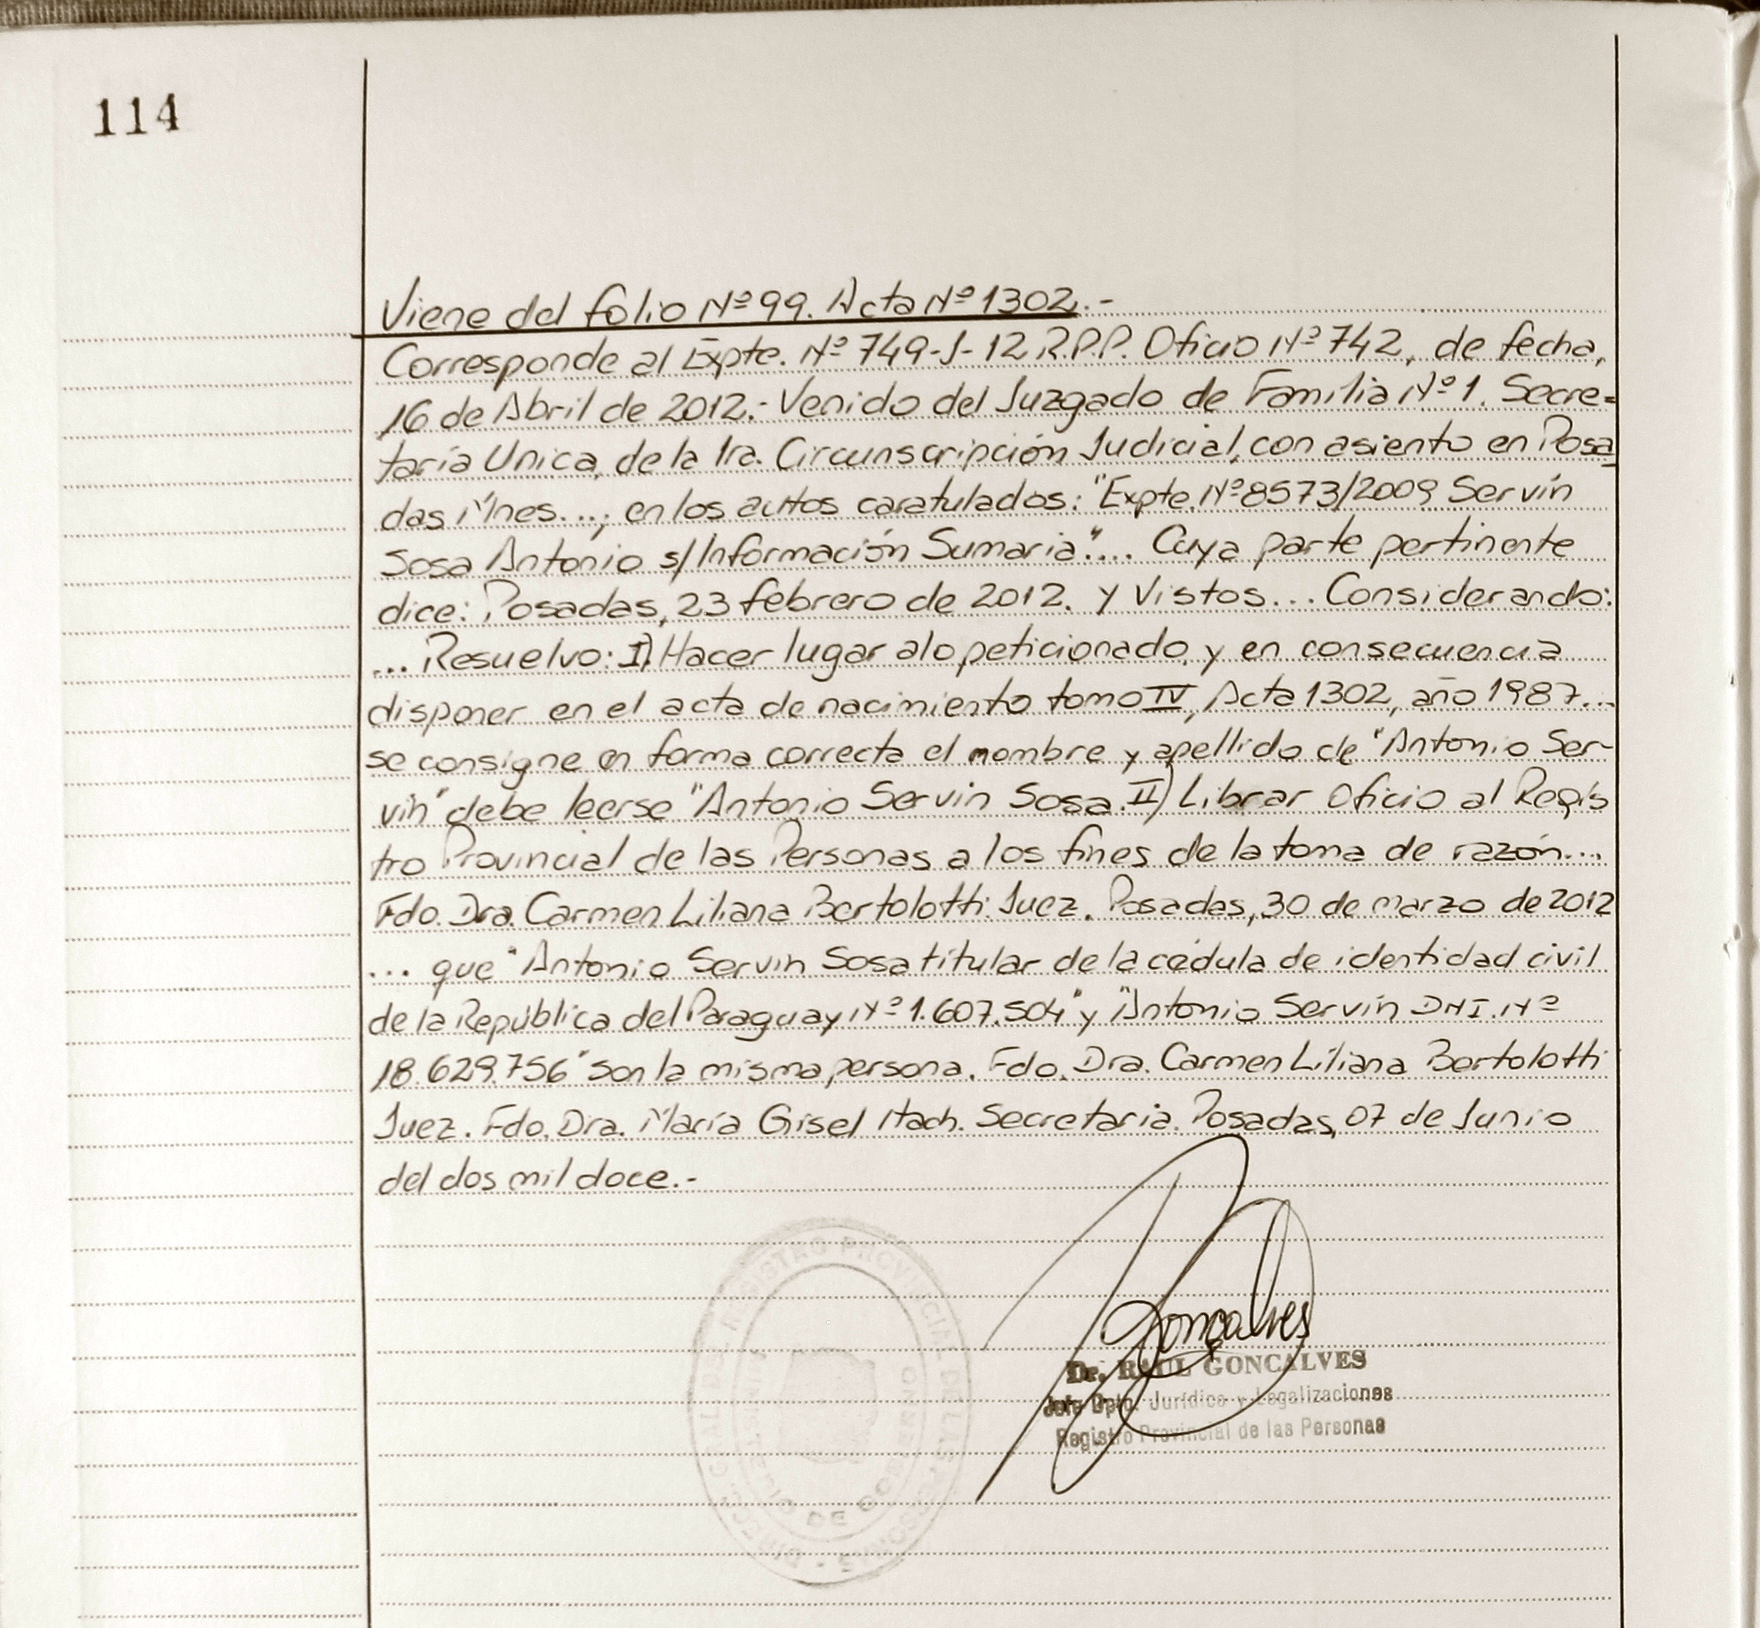 114
Viene del folio Nº 99. Acta Nº 1302.-
Corresponde al Expte. Nº 749-J-12 R.P.P. Oficio Nº 742, de fecha,
16 de Abril de 2012.- Venido del Juzgado de Familia Nº 1. Secre=
taría Unica, de la 1ra. Circunscripción Judicial, con asiento en Posa
das Mnes...; en los autos caratulados: "Expte. Nº 8573/2009 Servín
Sosa Antonio s/Información Sumaria"... Cuya parte pertinente
dice: Posadas, 23 febrero de 2012. Y Vistos... Considerando:
... Resuelvo: I) Hacer lugar alo peticionado, y en consecuencia
disponer en el acta de nacimiento tomo IV, Acta 1302, año 1987...
se consigne en forma correcta el nombre y apellido de "Antonio Ser-
vín" debe leerse "Antonio Servin Sosa. II) Librar Oficio al Regis
tro Provincial de las Personas a los fines de la toma de razón...
Fdo. Dra. Carmen Liliana Bertolotti. Juez. Posadas, 30 de marzo de 2012
... que "Antonio Servin Sosa titular de la cédula de identidad civil
de la República del Paraguay Nº 1.607.504" y "Antonio Servín DNI. Nº
18.629.756" son la misma persona. Fdo. Dra. Carmen Liliana Bertolotti
Juez. Fdo. Dra. María Gisel Hach. Secretaria. Posadas, 07 de Junio
del dos mil doce.-
Gonçalves
Dr. RAUL GONCALVES
Jefe Dpto. Jurídico y Legalizaciones
Registro Provincial de las Personas
DIRECC. GRAL. DEL REGISTRO PROVINCIAL DE LAS PERSONAS
MINISTERIO DE GOBIERNO